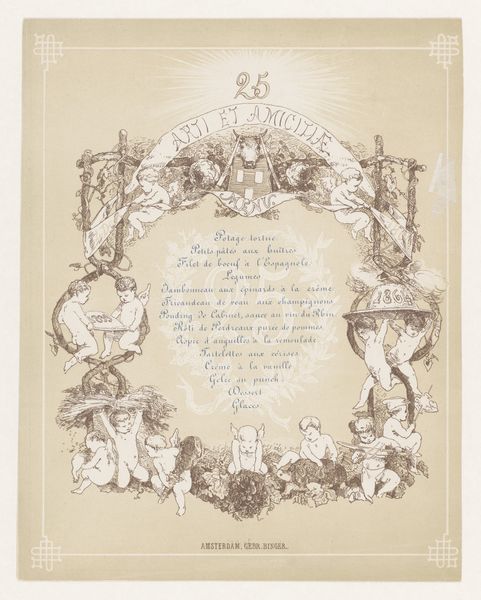 25
ARTI ET AMICITIÆ
Potage tortue
Petits pâtés aux huîtres
Filet de boeuf à l'Espagnole
Legumes
Jambonneau aux épinards à la crême
Fricandeau de veau aux champignons
Pouding de Cabinet, sauce au vin du Rhin
Rôti de Perdreaux purée de pommes
Aspic d'anguilles à la remoulade
Tartelettes aux cérises
Crême à la vanille
Gelée au punch
Dessert
Glaces
1864
AMSTERDAM, GEBR. BINGER.